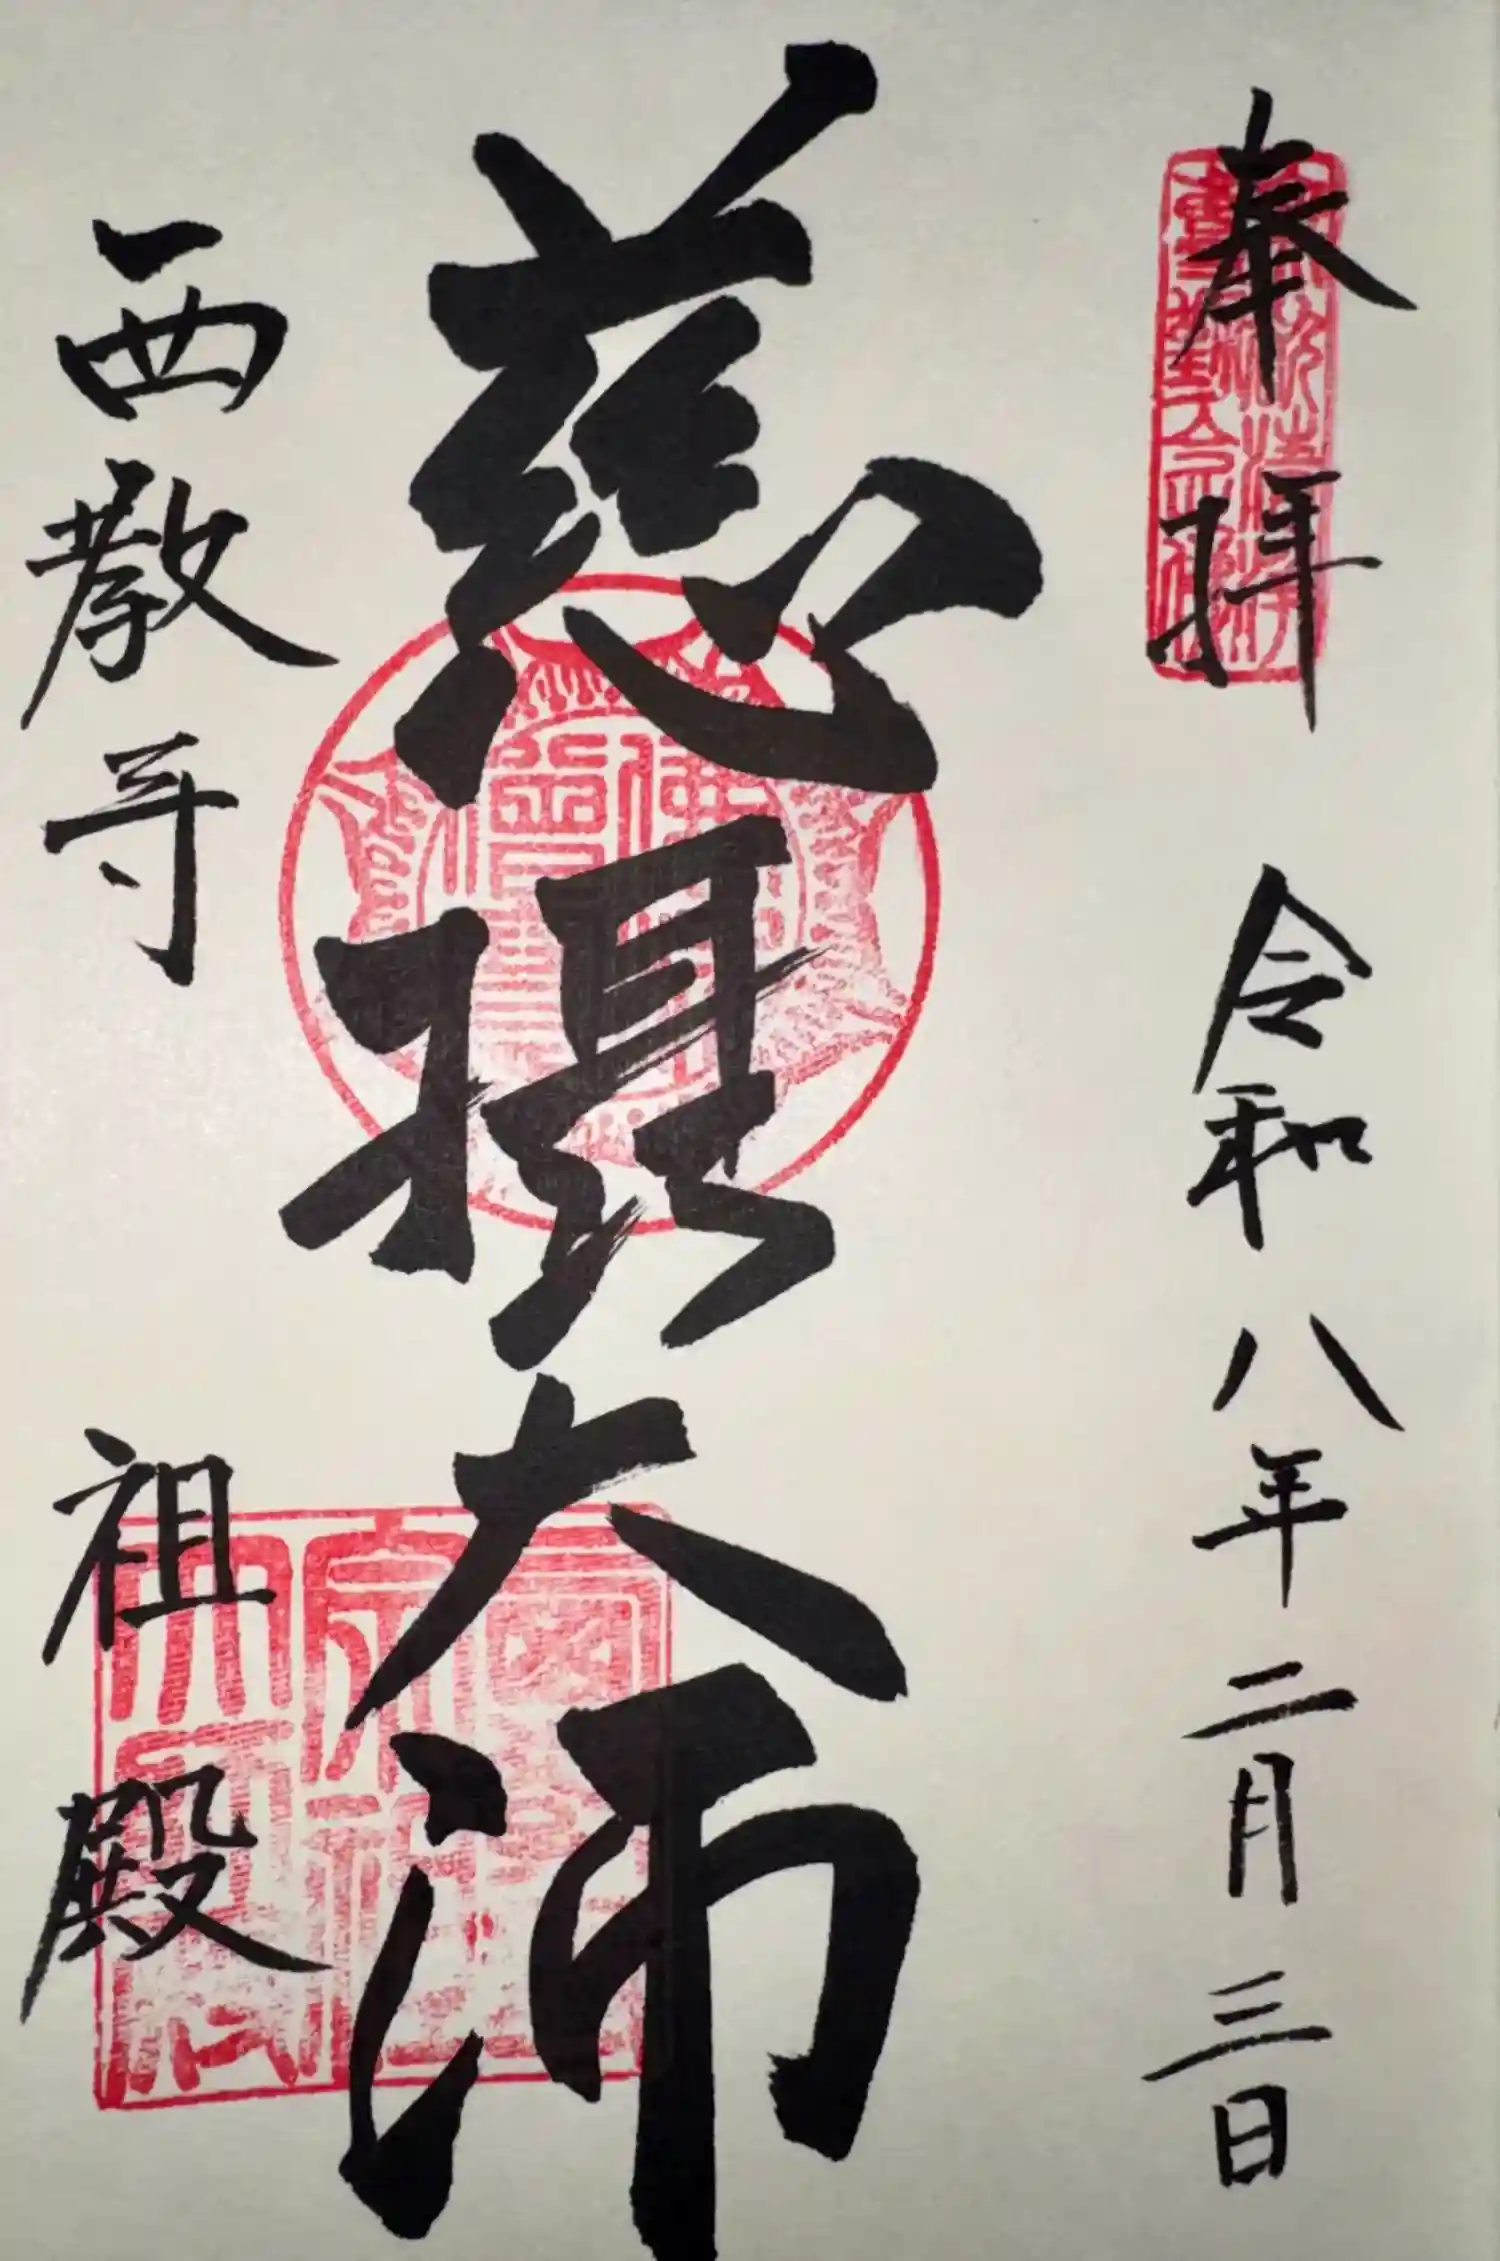 奉拝 令和八年二月三日
慈摂大師
西教寺 祖殿